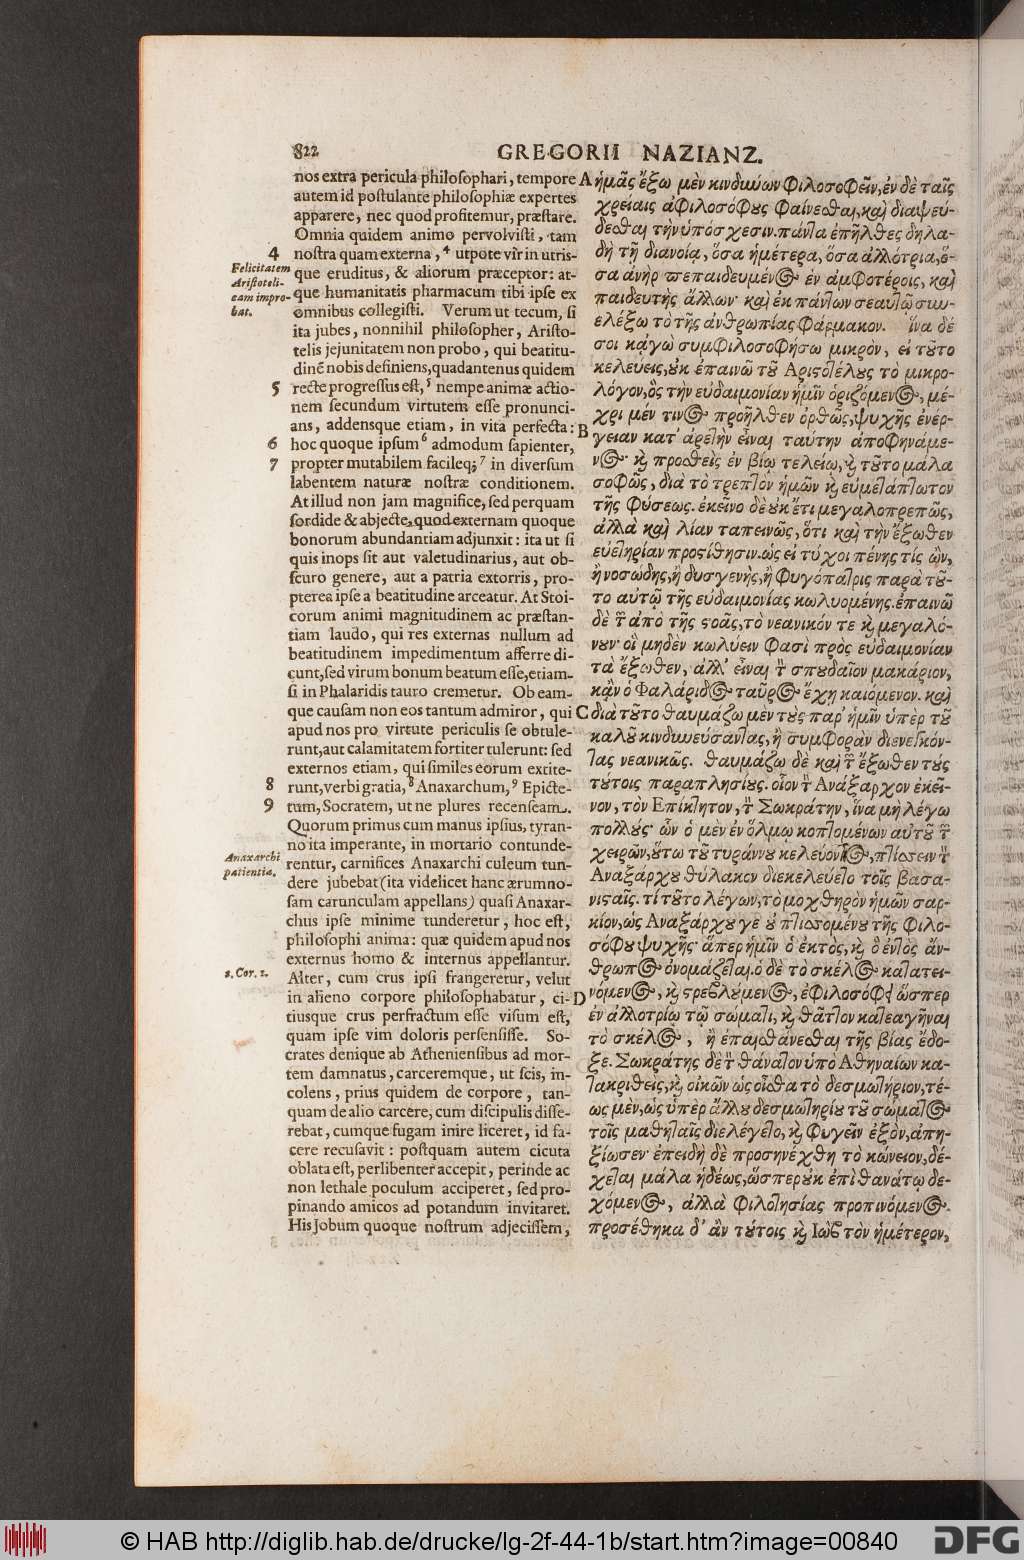 822
GREGORII NAZIANZ.
nos extra pericula philoſophari, tempore
autem id poſtulante philoſophiæ expertes
apparere, nec quod profitemur, præſtare.
Omnia quidem animo pervolviſti, tam
noſtra quam externa, 4 utpote vir in utris-
que eruditus, & aliorum præceptor: at-
que humanitatis pharmacum tibi ipſe ex
omnibus collegiſti. Verum ut tecum, ſi
ita jubes, nonnihil philoſopher, Ariſto-
telis jejunitatem non probo, qui beatitu-
dinē nobis definiens, quadantenus quidem
recte progreſſus eſt, 5 nempe animæ actio-
nem ſecundum virtutem eſſe pronunci-
ans, addensque etiam, in vita perfecta:
hoc quoque ipſum 6 admodum ſapienter,
propter mutabilem facileq; 7 in diverſum
labentem naturæ noſtræ conditionem.
At illud non jam magnifice, ſed perquam
ſordide & abjecte, quod externam quoque
bonorum abundantiam adjunxit: ita ut ſi
quis inops ſit aut valetudinarius, aut ob-
ſcuro genere, aut a patria extorris, pro-
pterea ipſe a beatitudine arceatur. At Stoi-
corum animi magnitudinem ac præſtan-
tiam laudo, qui res externas nullum ad
beatitudinem impedimentum afferre di-
cunt, ſed virum bonum beatum eſſe, etiam-
ſi in Phalaridis tauro cremetur. Ob eam-
que cauſam non eos tantum admiror, qui
apud nos pro virtute periculis ſe obtule-
runt, aut calamitatem fortiter tulerunt: ſed
externos etiam, qui ſimiles eorum extite-
runt, verbi gratia, 8 Anaxarchum, 9 Epicte-
tum, Socratem, ut ne plures recenſeam.
Quorum primus cum manus ipſius, tyran-
no ita imperante, in mortario contunde-
rentur, carnifices Anaxarchi culeum tun-
dere jubebat (ita videlicet hanc ærumno-
ſam carunculam appellans) quaſi Anaxar-
chus ipſe minime tunderetur, hoc eſt,
philoſophi anima: quæ quidem apud nos
externus homo & internus appellantur.
Alter, cum crus ipſi frangeretur, velut
in alieno corpore philoſophabatur, ci-
tiusque crus perfractum eſſe viſum eſt,
quam ipſe vim doloris perſenſiſſe. So-
crates denique ab Athenienſibus ad mor-
tem damnatus, carceremque, ut ſcis, in-
colens, prius quidem de corpore, tan-
quam de alio carcere, cum diſcipulis diſſe-
rebat, cumque fugam inire liceret, id fa-
cere recuſavit: poſtquam autem cicuta
oblata eſt, perlibenter accepit, perinde ac
non lethale poculum acciperet, ſed pro-
pinando amicos ad potandum invitaret.
His Jobum quoque noſtrum adjeciſſem,
4
Felicitatem
Ariſtoteli-
cam impro-
bat.
5
6
7
8
9
Anaxarchi
patientia.
2. Cor. 2.
A
B
C
D
ἡμᾶς ἔξω μὲν κινδύνων φιλοσοφεῖν, ἐν δὲ ταῖς
χρείαις ἀφιλοσόφους φαίνεσθαι, καὶ διαψεύ-
δεσθαι τὴν ὑπόσχεσιν. πάντα ἐπῆλθες δηλα-
δὴ τῇ διανοίᾳ, ὅσα ἡμέτερα, ὅσα ἀλλότρια, ὅ-
σα ἀνὴρ πεπαιδευμένος ἐν ἀμφοτέροις, καὶ
παιδευτὴς ἄλλων· καὶ ἐκ πάντων σεαυτῷ συν-
ελέξω τὸ τῆς ἀνθρωπίας φάρμακον. ἵνα δέ
σοι κἀγὼ συμφιλοσοφήσω μικρὸν, εἰ τοῦτο
κελεύεις, οὐκ ἐπαινῶ τοῦ Αριστοτέλους τὸ μικρο-
λόγον, ὃς τὴν εὐδαιμονίαν ἡμῖν ὁριζόμενος, μέ-
χρι μέν τινος προῆλθεν ὀρθῶς, ψυχῆς ἐνέρ-
γειαν κατ' ἀρετὴν εἶναι ταύτην ἀποφηνάμε-
νος· καὶ προσθεὶς ἐν βίῳ τελείῳ, καὶ τοῦτο μάλα
σοφῶς, διὰ τὸ τρεπτὸν ἡμῶν καὶ εὐμετάπτωτον
τῆς φύσεως. ἐκεῖνο δὲ οὐκ ἔτι μεγαλοπρεπῶς,
ἀλλὰ καὶ λίαν ταπεινῶς, ὅτι καὶ τὴν ἔξωθεν
εὐετηρίαν προστίθησιν. ὡς εἰ τύχοι πένης τίς ὢν,
ἢ νοσώδης, ἢ δυσγενὴς, ἢ φυγόπατρις παρὰ τοῦ-
το αὐτῷ τῆς εὐδαιμονίας κωλυομένης. ἐπαινῶ
δὲ τῶν ἀπὸ τῆς στοᾶς, τὸ νεανικόν τε καὶ μεγαλό-
νουν· οἳ μηδὲν κωλύειν φασὶ πρὸς εὐδαιμονίαν
τὰ ἔξωθεν, ἀλλ' εἶναι τὸν σπουδαῖον μακάριον,
κἂν ὁ Φαλάριδος ταῦρος ἔχῃ καιόμενον. καὶ
διὰ τοῦτο θαυμάζω μὲν τοὺς παρ' ἡμῖν ὑπὲρ τοῦ
καλοῦ κινδυνεύσαντας, ἢ συμφορὰν διενεγκόν-
τας νεανικῶς. θαυμάζω δὲ καὶ τῶν ἔξωθεν τοὺς
τούτοις παραπλησίους. οἷον τὸν Ανάξαρχον ἐκεῖ-
νον, τὸν Επίκτητον, τὸν Σωκράτην, ἵνα μὴ λέγω
πολλούς· ὧν ὁ μὲν ἐν ὅλμῳ κοπτομένων αὐτοῦ τῶν
χειρῶν, οὕτω τοῦ τυράννου κελεύοντος, πτίσσειν τὸν
Αναξάρχου θύλακον διεκελεύετο τοῖς βασα-
νισταῖς. τί τοῦτο λέγων, τὸ μοχθηρὸν ἡμῶν σαρ-
κίον, ὡς Αναξάρχου γε οὐ πτισσομένου τῆς φιλο-
σόφου ψυχῆς· ἅπερ ἡμῖν ὁ ἐκτὸς, καὶ ὁ ἐντὸς ἄν-
θρωπος ὀνομάζεται. ὁ δὲ τὸ σκέλος κατατει-
νόμενος, καὶ στρεβλούμενος, ἐφιλοσόφει ὥσπερ
ἐν ἀλλοτρίῳ τῷ σώματι, καὶ θᾶττον κατεαγῆναι
τὸ σκέλος, ἢ ἐπαισθάνεσθαι τῆς βίας ἔδο-
ξε. Σωκράτης δὲ τὸν θάνατον ὑπὸ Αθηναίων κα-
τακριθεὶς, καὶ οἰκῶν ὡς οἶσθα τὸ δεσμωτήριον, τέ-
ως μὲν, ὡς ὑπὲρ ἄλλου δεσμωτηρίου τοῦ σώματος
τοῖς μαθηταῖς διελέγετο, καὶ φυγεῖν ἐξὸν, ἀπη-
ξίωσεν· ἐπειδὴ δὲ προσηνέχθη τὸ κώνειον, δέ-
χεται μάλα ἡδέως, ὥσπερ οὐκ ἐπὶ θανάτῳ δε-
χόμενος, ἀλλὰ φιλοτησίας προπινόμενος.
προσέθηκα δ' ἂν τούτοις καὶ Ιὼβ τὸν ἡμέτερον,
© HAB http://diglib.hab.de/drucke/lg-2f-44-1b/start.htm?image=00840
DFG